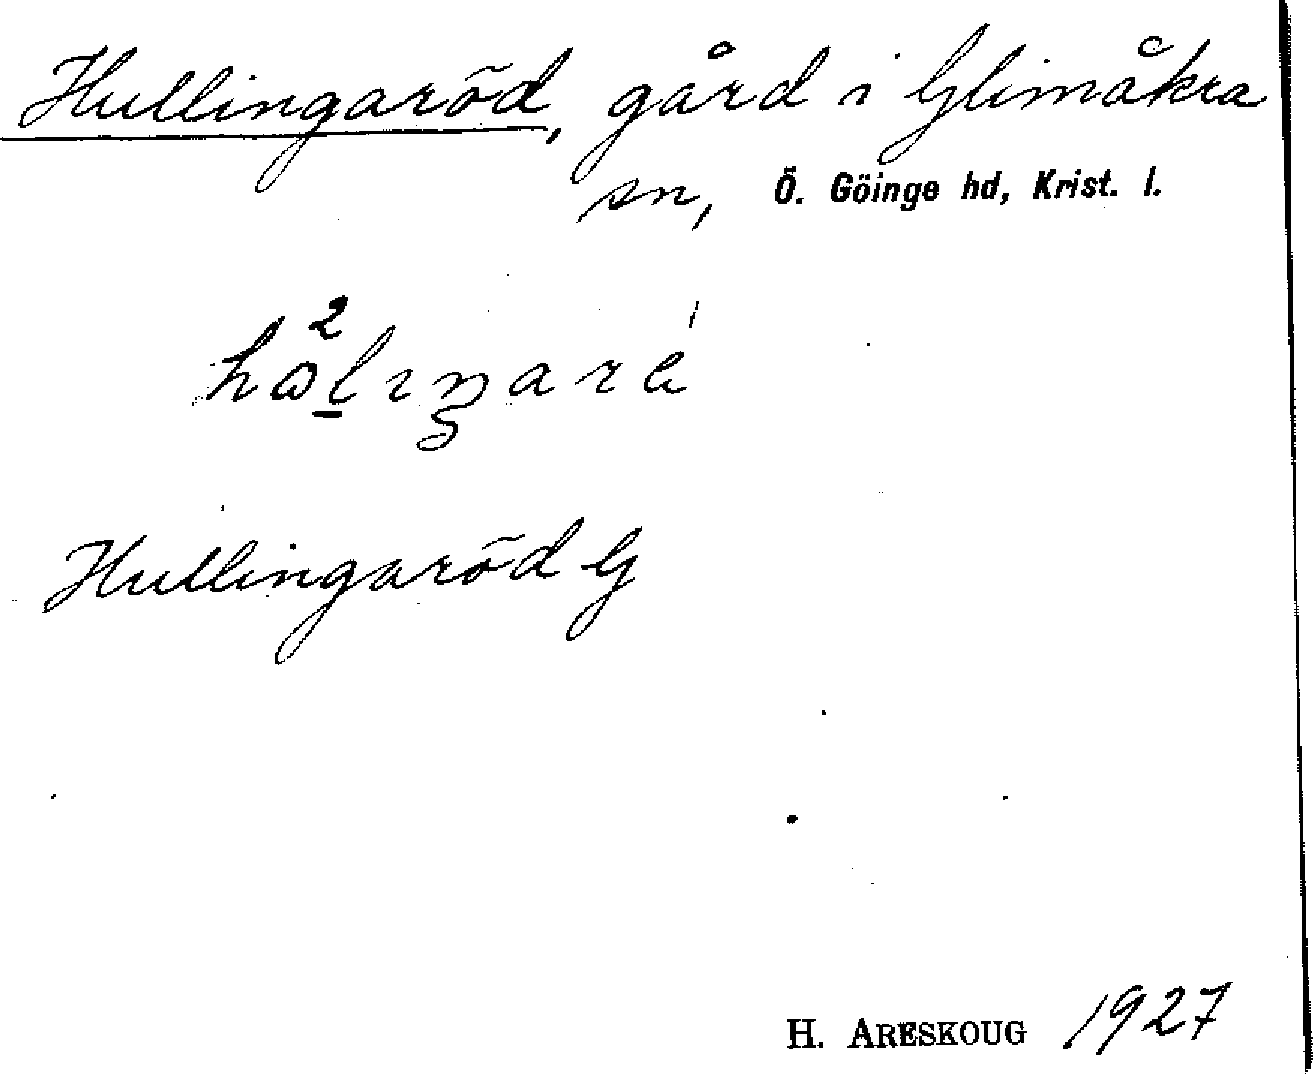 Hullingaröd, gård i Glimåkra
sn, Ö. Göinge hd, Krist. l.
Hullingaröd G
H. ARESKOUG 1927